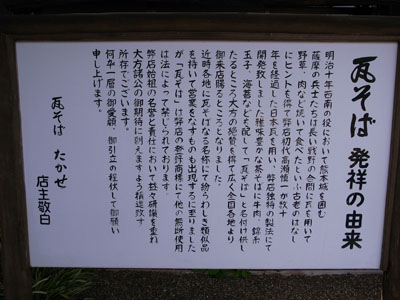 瓦そば 発祥の由来
明治十年西南の役において熊本城を囲む
薩摩の兵士たちは長い野戦の合間に瓦を用いて
野草、肉など焼いて食べたという古老のはなし
にヒントを得て弊店初代高瀬慎一が数十
年を経過した日本瓦を用い、弊店独特の製法にて
開発致しました雅味豊かな茶そばに牛肉、錦糸
玉子、海苔などを配して「瓦そば」と名付け供し
たるところ大方の絶賛を得て広く全国各地より
御来店賜るところとなりました。
近時各地に瓦そばなる名称にて紛らわしき類似品
を持いて営業をなすものも出現するに至りました
が「瓦そば」は弊店の登録商標にて他の無断使用
は法によって禁じられております。
弊店始祖の名誉と責任において益々研鑽を重ね
大方諸公の御期待に副えますよう精進致す
所存でございます。
何卒一層の御愛顧、御引立の程伏して御願い
申し上げます。
瓦そば たかせ
店主敬白